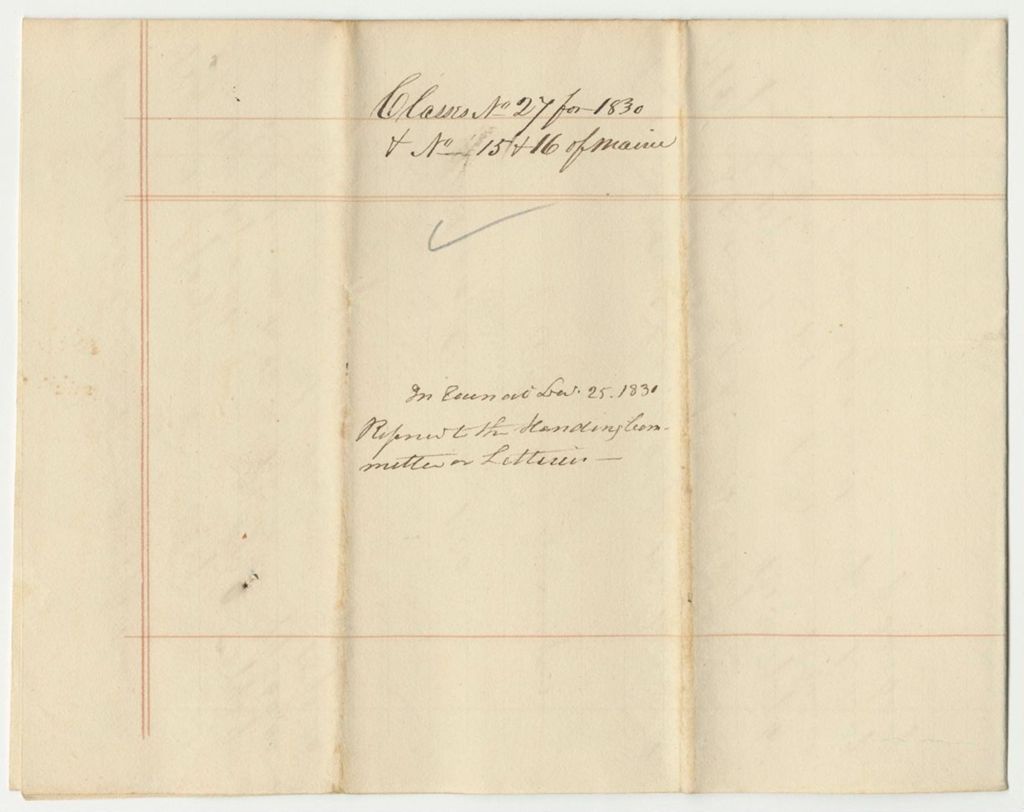 Classes No 27 for 1830
& No 15 & 16 of Maine
In Council Dec. 25. 1830
Referred to the Standing Com-
mittee on Lotteries —